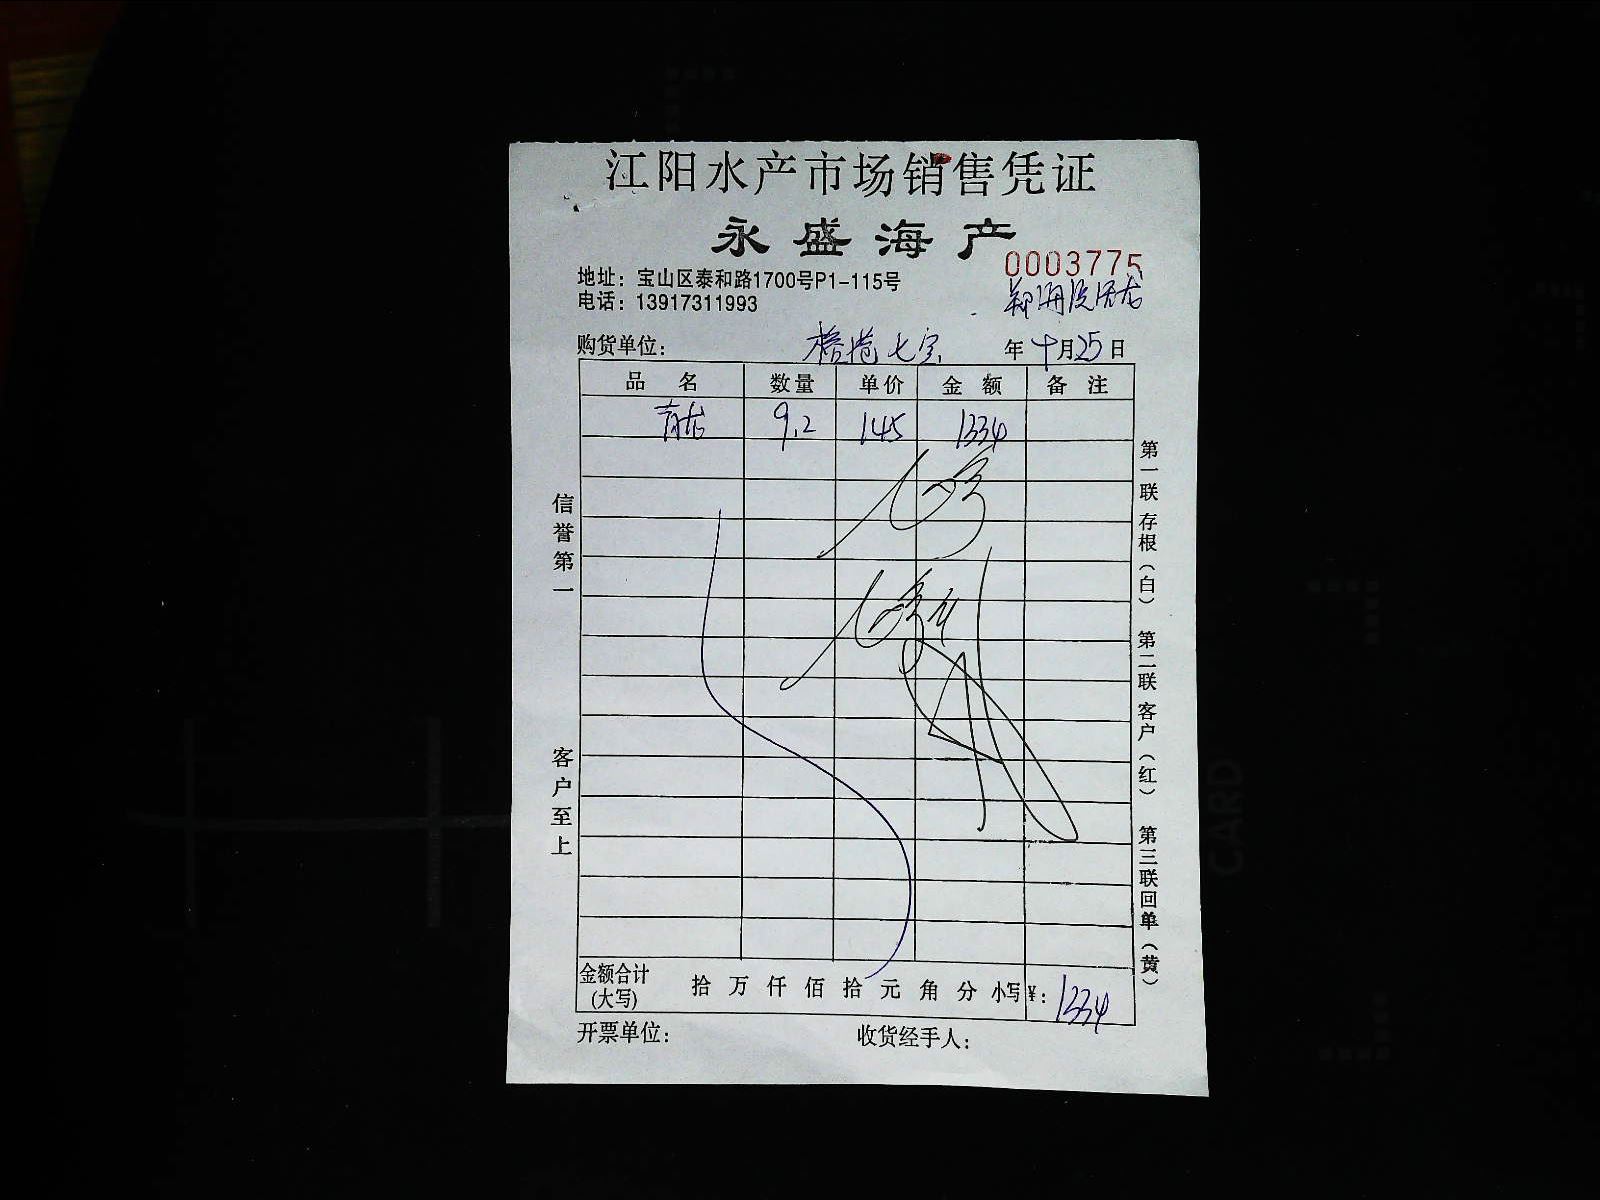 江阳水产市场销售凭证
永盛海产
0003775
地址：宝山区泰和路1700号P1-115号
电话：13917311993
购货单位： 七宝 年 十月25日
品 名 数量 单价 金 额 备 注
青龙 9.2 145 1334
信誉第一
客户至上
第一联存根（白） 第二联客户（红） 第三联回单（黄）
金额合计 拾 万 仟 佰 拾 元 角 分 小写 ¥：1334
(大写)
开票单位： 收货经手人：